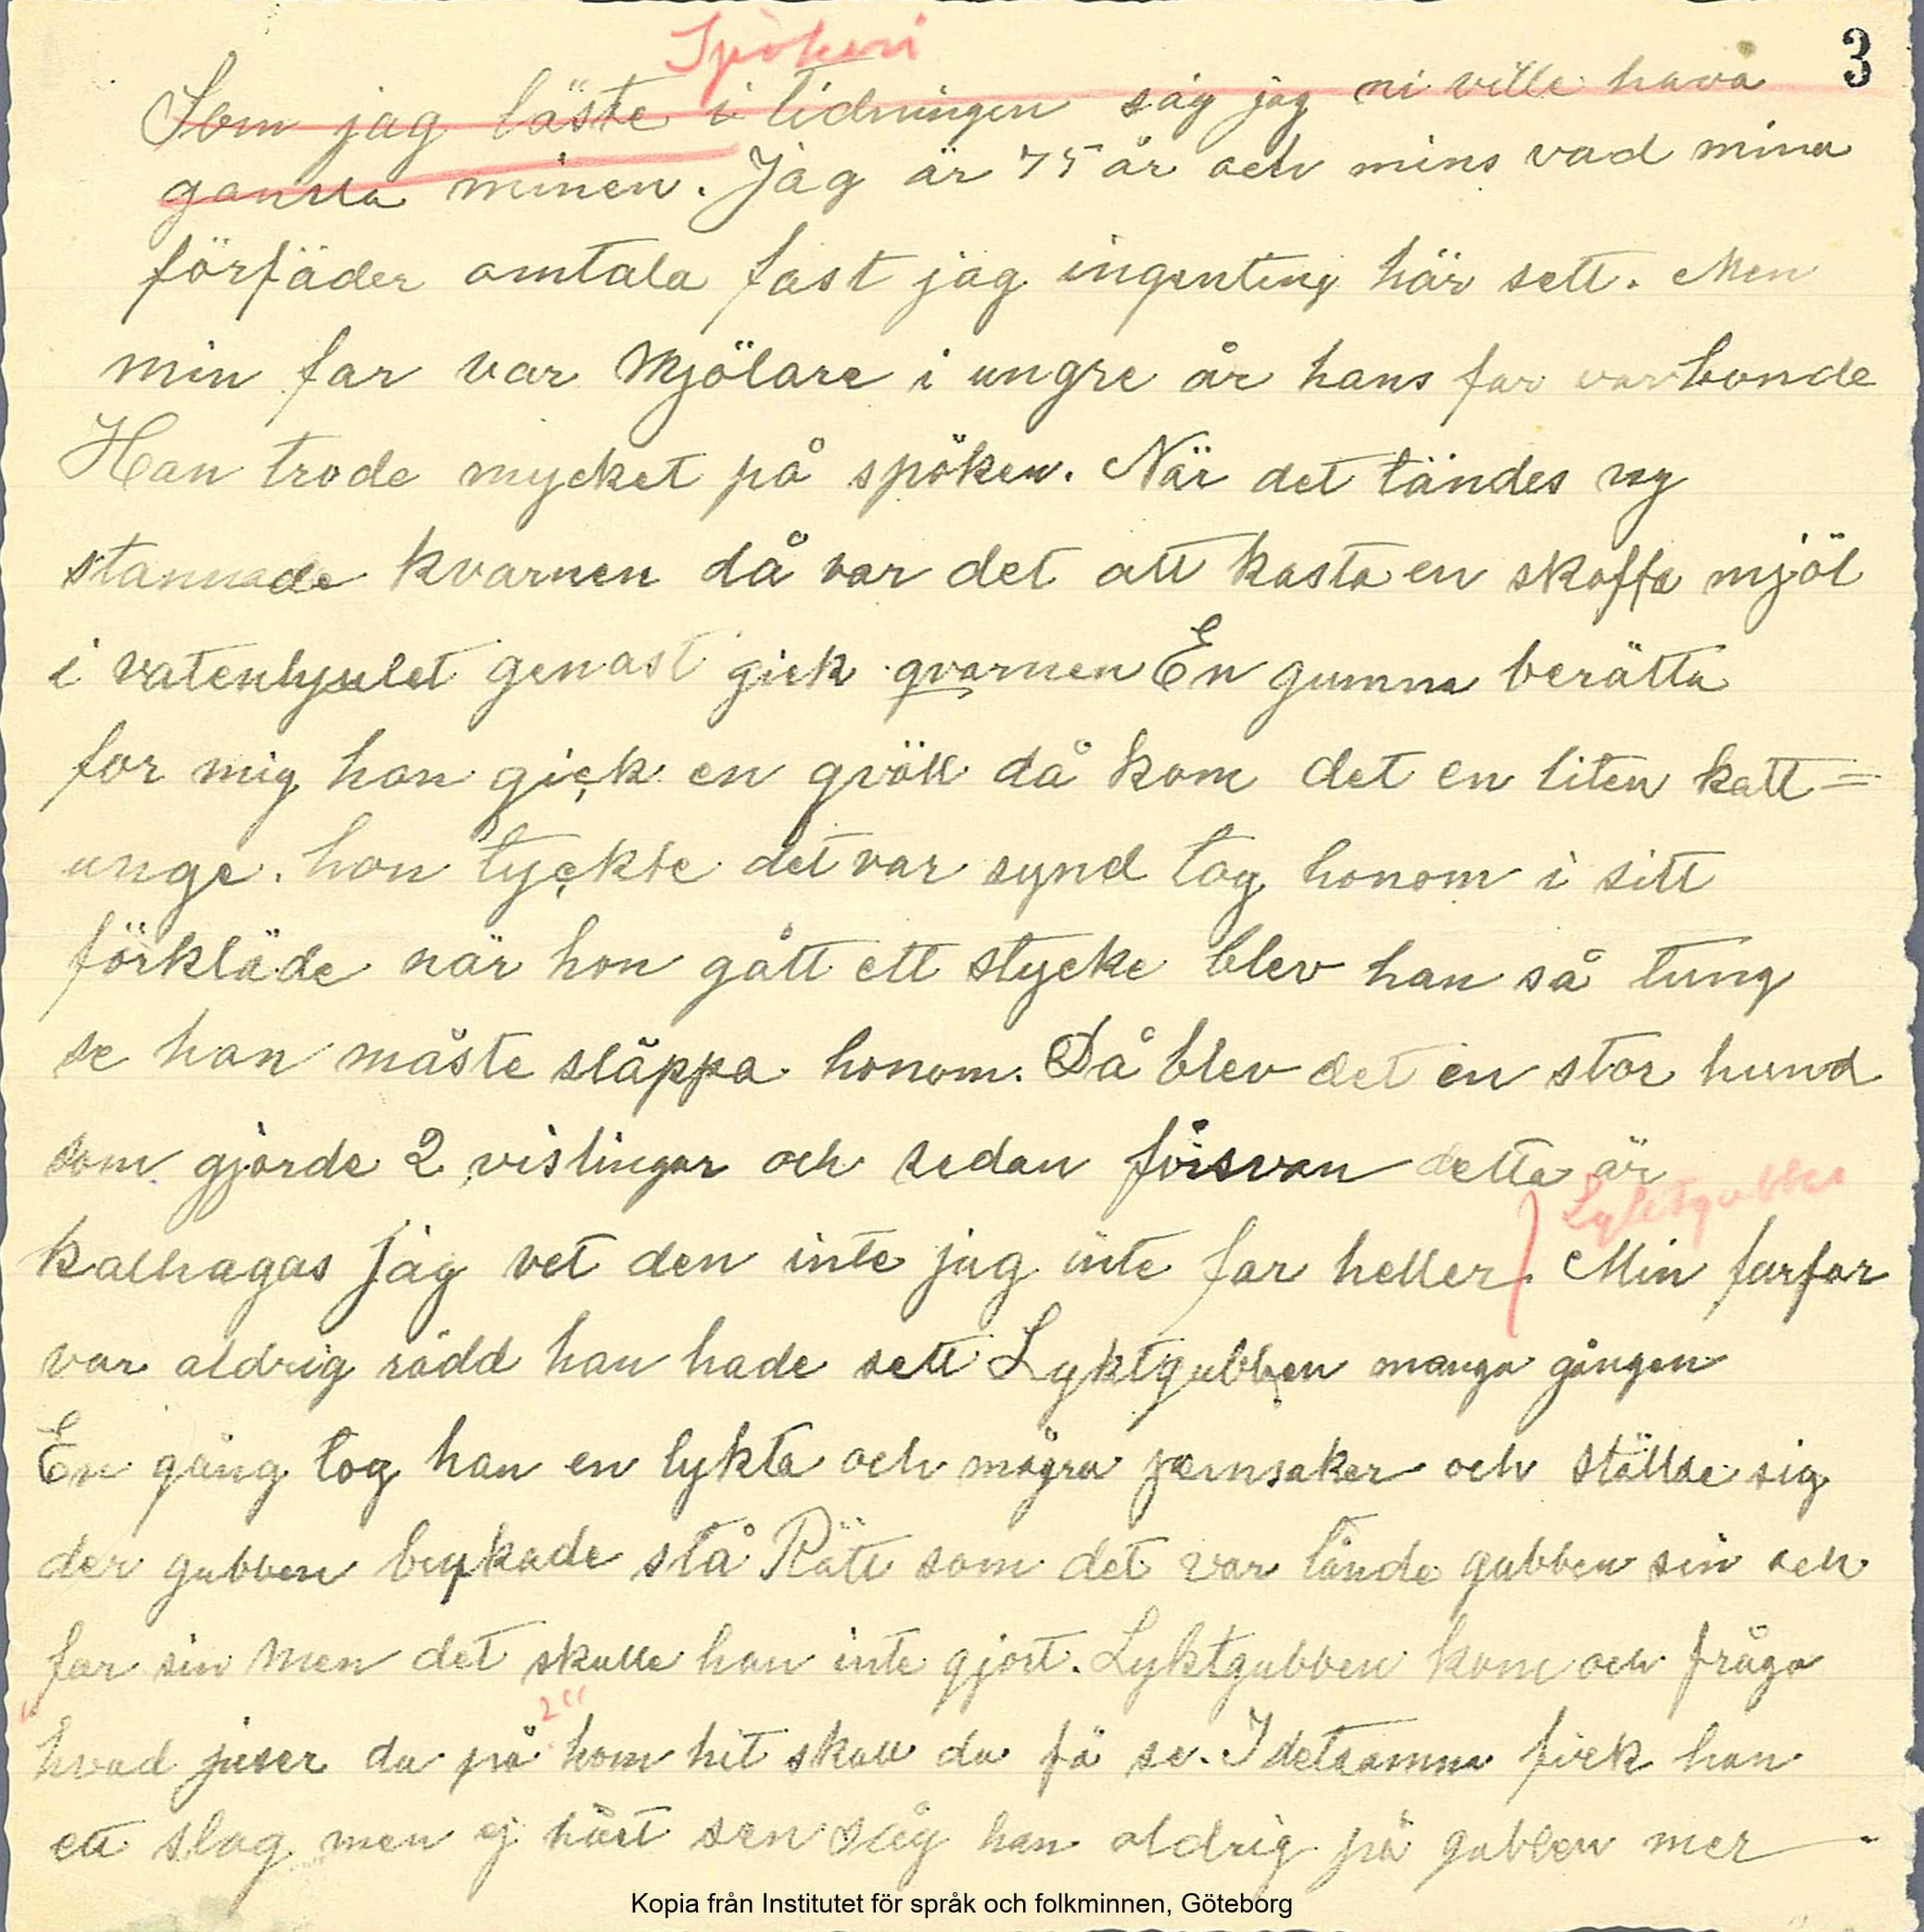 Spökeri
3
Som jag läste i tidningen såg jag ni ville hava
gamla minen. Jag är 75 år och mins vad mina
förfäder omtala fast jag ingenting här sett. Men
min far var Mjölare i ungre år hans far var bonde
Han trode mycket på spöken. När det tändes ny
stannade kvarnen då var det att kasta en skoffa mjöl
i vatenhjulet genast gick qvarnen En gumma berätta
for mig hon gick en qväll då kom det en liten katt=
unge. hon tyckte det var synd tog honom i sitt
förkläde när hon gått ett stycke blev han så tung
se hon måste släppa honom. Då blev det en stor hund
som gjorde 2 vislingar och sedan försvan detta är
kalhagas Jag vet den inte jag inte far heller.
Lyktgubbe
Min farfar
var aldrig rädd han hade sett Lyktgubben manga gången
En gång tog han en lykta och några jernsaker och ställde sig
der gubben brukade stå Rätt som det var tände gubben sin och
far sin Men det skulle han inte gjort. Lyktgubben kom och fråga
" 2"
hvad juser du på kom hit skall du få se. I detsamma fick han
ett slag men ej hårt sen såg han aldrig på gubben mer
Kopia från Institutet för språk och folkminnen, Göteborg